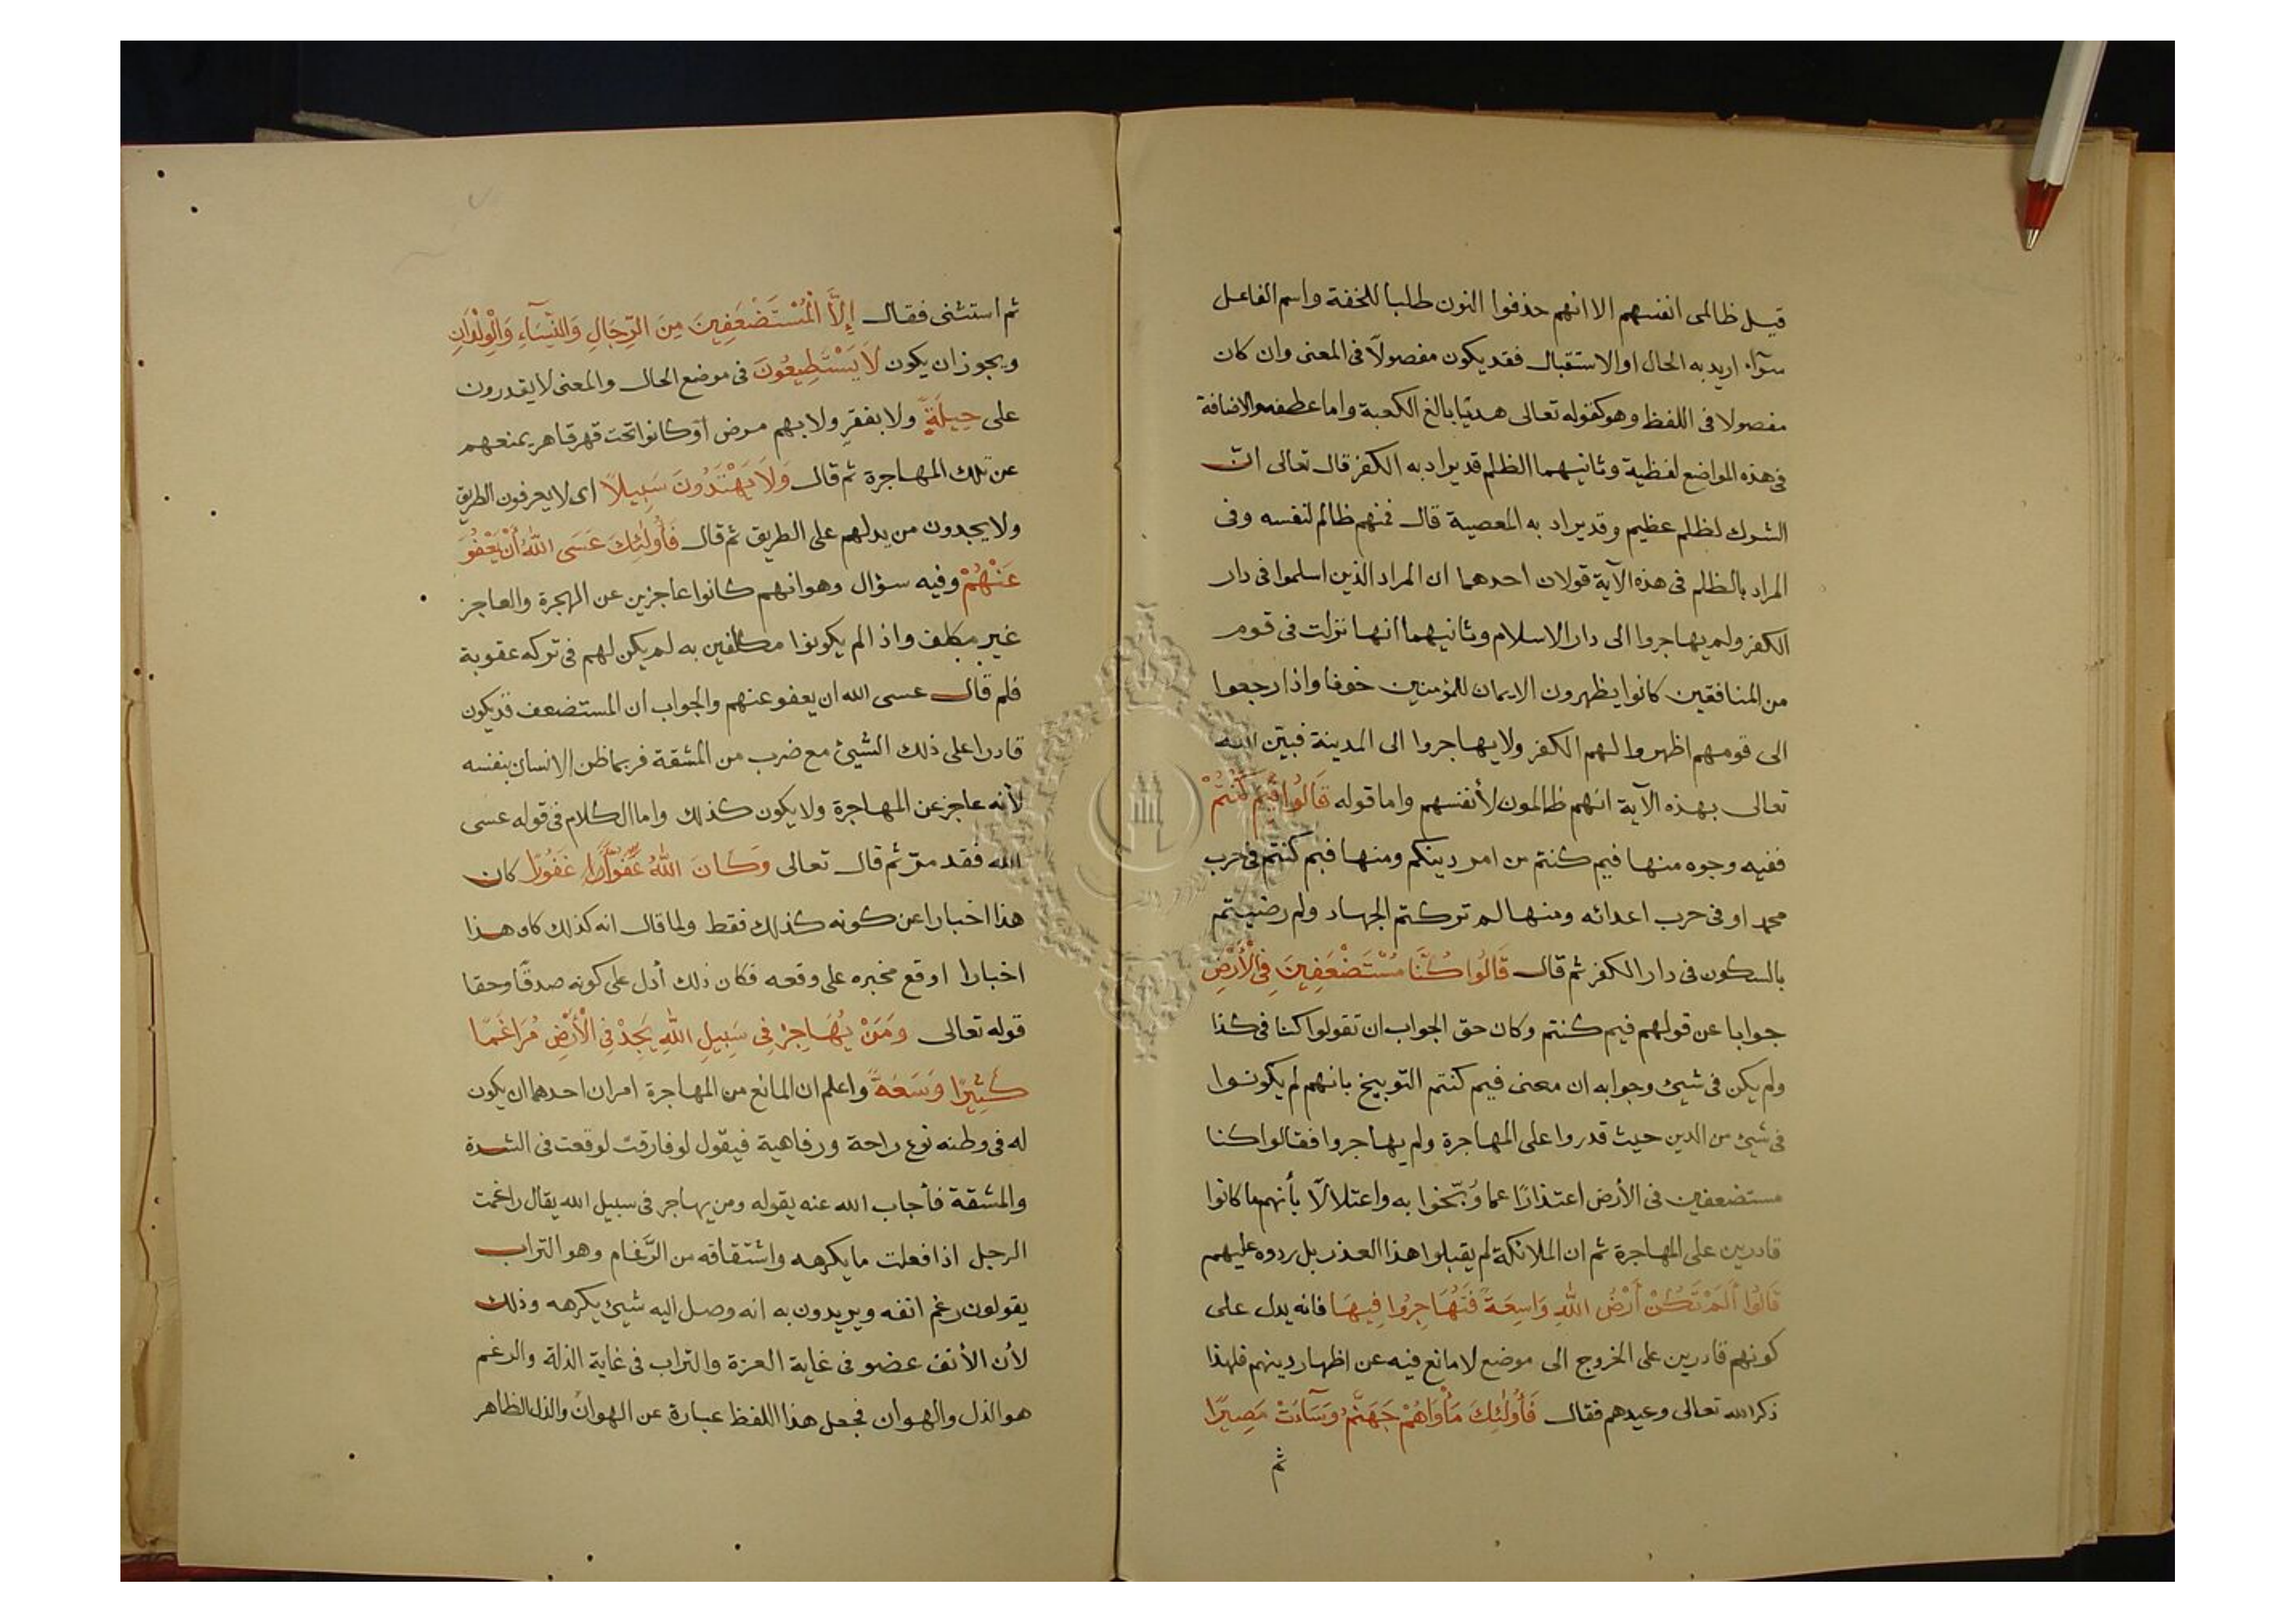 قيل ظالمى انفسهم الا انهم حذفوا النون طلبا للخفة واسم الفاعل
سوآء اريد به الحال او الاستقبال فقد يكون مفصولاً فى المعنى وان كان
مفصولا فى اللفظ وهو كقوله تعالى هديًا بالغ الكعبة واما عطفه والاضافة
فى هذه المواضع لفظية وثانيهما الظلم قد يراد به الكفر قال تعالى انّ
الشرك لظلم عظيم وقد يراد به المعصية قال فمنهم ظالم لنفسه وفى
المراد بالظلم فى هذه الآية قولان احدهما ان المراد الذين اسلموا فى دار
الكفر ولم يهاجروا الى دار الاسلام وثانيهما انها نزلت فى قوم
من المنافقين كانوا يظهرون الايمان للمؤمنين خوفا واذا رجعوا
الى قومهم اظهروا لهم الكفر ولا يهاجروا الى المدينة فبيّن الله
تعالى بهذه الآية انهم ظالمون لأنفسهم واما قوله قَالُوا فِيمَ كُنْتُمْ
ففيه وجوه منها فيم كنتم من امر دينكم ومنها فيم كنتم فى حرب
محمد او فى حرب اعدائه ومنها لم تركتم الجهاد ولم رضيتم
بالسكون فى دار الكفر ثم قال قَالُوا كُنَّا مُسْتَضْعَفِينَ فِى الْأَرْضِ
جوابا عن قولهم فيم كنتم وكان حق الجواب ان تقولوا كنا فى كذا
ولم يكن فى شيئ وجوابه ان معنى فيم كنتم التوبيخ بانهم لم يكونوا
فى شيئ من الدين حيث قدروا على المهاجرة ولم يهاجروا فقالوا كنا
مستضعفين فى الأرض اعتذارًا عما وُبّخوا به واعتلالًا بأنهم ما كانوا
قادرين على المهاجرة ثم ان الملائكة لم يقبلوا هذا العذر بل ردوه عليهم
قَالُوا أَلَمْ تَكُنْ أَرْضُ اللَّهِ وَاسِعَةً فَتُهَاجِرُوا فِيهَا فانه يدل على
كونهم قادرين على الخروج الى موضع لا مانع فيه عن اظهار دينهم فلهذا
ذكر الله تعالى وعيدهم فقال فَأُولٰئِكَ مَأْوَاهُمْ جَهَنَّمُ وَسَآءَتْ مَصِيرًا
ثم
ثم استثنى فقال إِلَّا الْمُسْتَضْعَفِينَ مِنَ الرِّجَالِ وَالنِّسَآءِ وَالْوِلْدَانِ
ويجوز ان يكون لَا يَسْتَطِيعُونَ فى موضع الحال والمعنى لا يقدرون
على حِيلَةٍ ولا بفقرٍ ولا بهم مرض او كانوا تحت قهر قاهر يمنعهم
عن تلك المهاجرة ثم قال وَلَا يَهْتَدُونَ سَبِيلًا اى لا يعرفون الطريق
ولا يجدون من يدلهم على الطريق ثم قال فَأُولٰئِكَ عَسَى اللَّهُ أَنْ يَعْفُوَ
عَنْهُمْ وفيه سؤال وهو انهم كانوا عاجزين عن الهجرة والعاجز
غير مكلف واذا لم يكونوا مكلفين به لم يكن لهم فى تركه عقوبة
فلم قال عسى الله ان يعفو عنهم والجواب ان المستضعف قد يكون
قادرا على ذلك الشيئ مع ضرب من المشقة فربما ظن الانسان بنفسه
لأنه عاجز عن المهاجرة ولا يكون كذلك واما الكلام فى قوله عسى
الله فقد مرّ ثم قال تعالى وَكَانَ اللَّهُ عَفُوًّا غَفُورًا كان
هذا اخبارا عن كونه كذلك فقط ولما قال انه كذلك كان هذا
اخبارا اوقع مخبره على وقعه فكان ذلك أدل على كونه صدقًا وحقا
قوله تعالى وَمَنْ يُهَاجِرْ فِى سَبِيلِ اللَّهِ يَجِدْ فِى الْأَرْضِ مُرَاغَمًا
كَثِيرًا وَسَعَةً واعلم ان المانع من المهاجرة امران احدهما ان يكون
له فى وطنه نوع راحة ورفاهية فيقول لو فارقت لوقعت فى الشدة
والمشقة فأجاب الله عنه بقوله ومن يهاجر فى سبيل الله يقال راغمت
الرجل اذا فعلت ما يكرهه واشتقاقه من الرَّغام وهو التراب
يقولون رغم انفه ويريدون به انه وصل اليه شيئ يكرهه وذلك
لأن الأنف عضو فى غاية العزة والتراب فى غاية الذلة والرغم
هو الذل والهوان فجعل هذا اللفظ عبارة عن الهوان والذل الظاهر